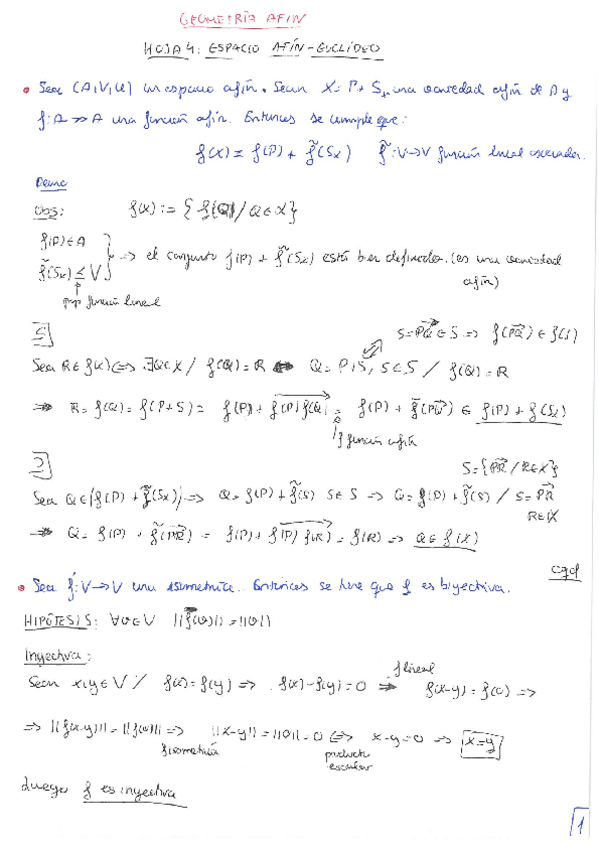 GEOMETRÍA AFÍN
HOJA 4: ESPACIO AFÍN-EUCLÍDEO
• Sea (A,V,φ) un espacio afín. Sean X = P + Sₓ una variedad afín de A y
f: A → A una función afín. Entonces se cumple que:
f(X) = f(P) + f̃(Sₓ) f̃: V→V función lineal asociada.
Demo
Obs: f(X) := { f(Q) / Q ∈ X }
f(P) ∈ A
f̃(Sₓ) ≤ V } ⇒ el conjunto f(P) + f̃(Sₓ) está bien definido. (es una variedad
afín)
función lineal
⊆] S = PQ⃗ ∈ S ⇒ f(PQ⃗) ∈ f(S)
Sea R ∈ f(X) ⇔ ∃Q∈X / f(Q) = R ⇔ Q = P + S, S∈S / f(Q) = R
⇒ R = f(Q) = f(P+S) = f(P) + f(P)f(Q)⃗ = f(P) + f̃(PQ⃗) ∈ f(P) + f(Sₓ)
f función afín
⊇] S = {PR⃗ / R∈X}
Sea Q ∈ f(P) + f̃(Sₓ) ⇒ Q = f(P) + f̃(S) S∈S ⇒ Q = f(P) + f̃(S) / S = PR⃗
R∈X
⇒ Q = f(P) + f̃(PR⃗) = f(P) + f(P)f(R)⃗ = f(R) ⇒ Q ∈ f(X)
cqd
• Sea f: V→V una isometría. Entonces se tiene que f es biyectiva.
HIPÓTESIS: ∀v∈V ||f(v)|| = ||v||
Inyectiva:
Sean x,y ∈ V / f(x) = f(y) ⇒ f(x) - f(y) = 0 ⇒ f(x-y) = f(0) ⇒
f lineal
⇒ ||f(x-y)|| = ||f(0)|| ⇒ ||x-y|| = ||0|| = 0 ⇔ x-y = 0 ⇒ x=y
f isometría producto
escalar
Luego f es inyectiva
1